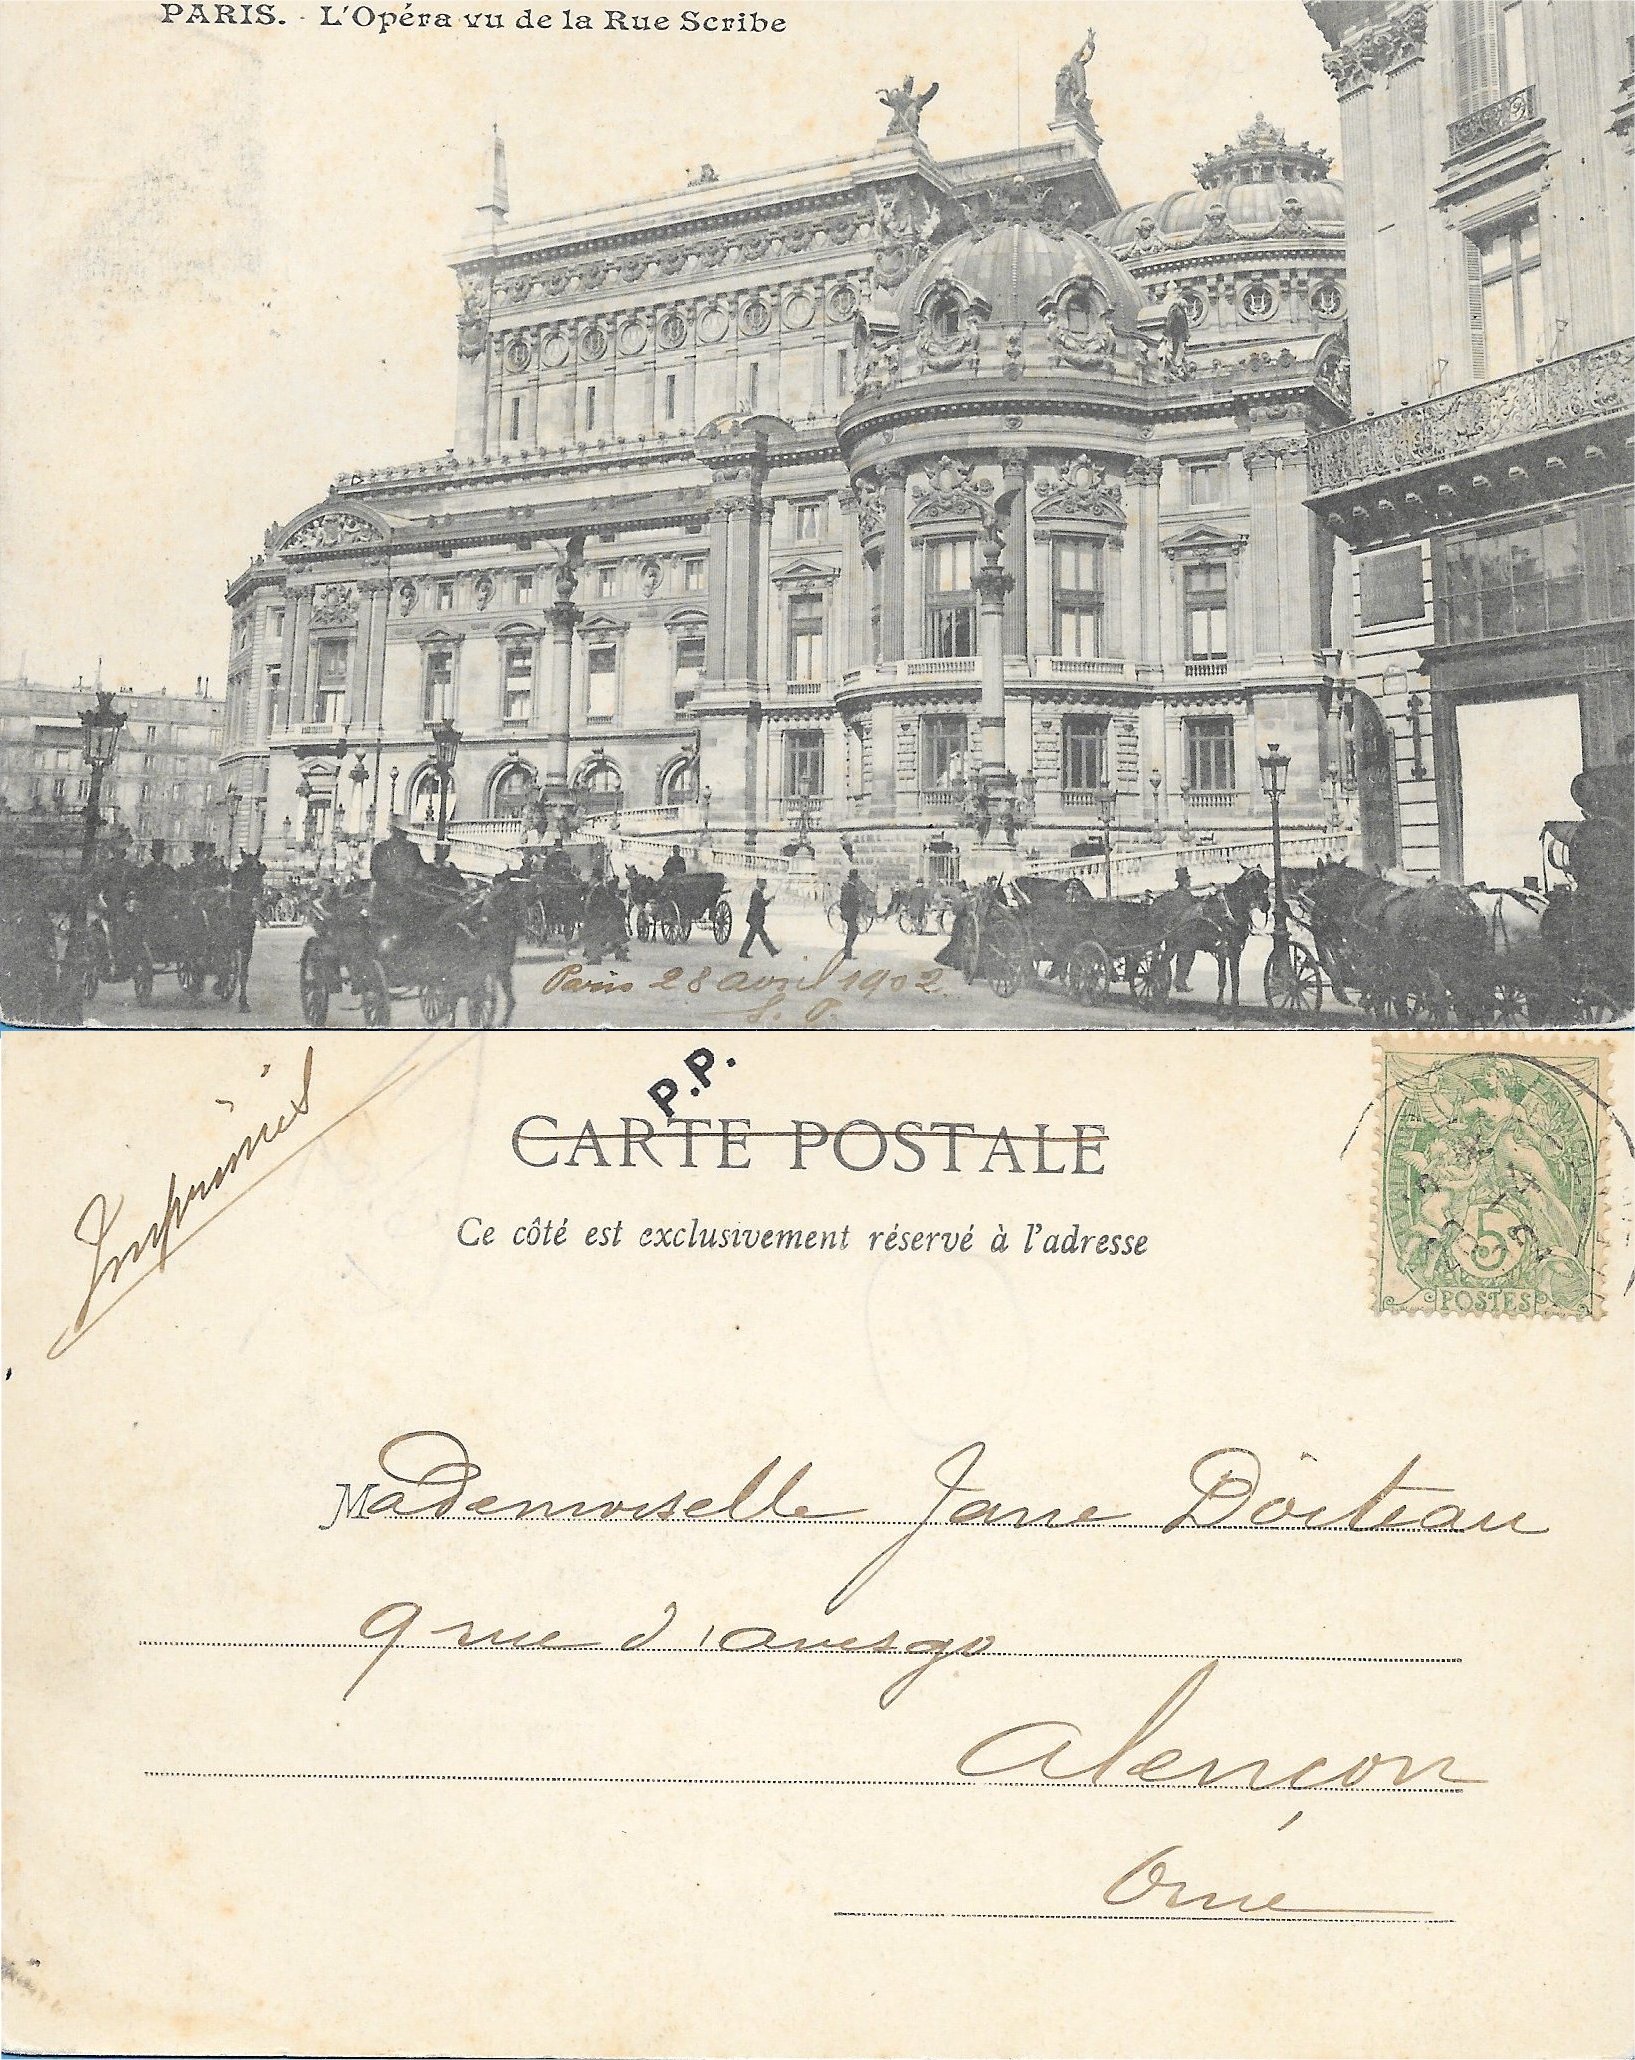 PARIS. - L'Opéra vu de la Rue Scribe
Paris 28 avril 1902.
P.P.
Imprimés
CARTE POSTALE
Ce côté est exclusivement réservé à l'adresse
5
POSTES
Mademoiselle Jane Boiteau
9 rue d'avesgo
Alençon
Orne